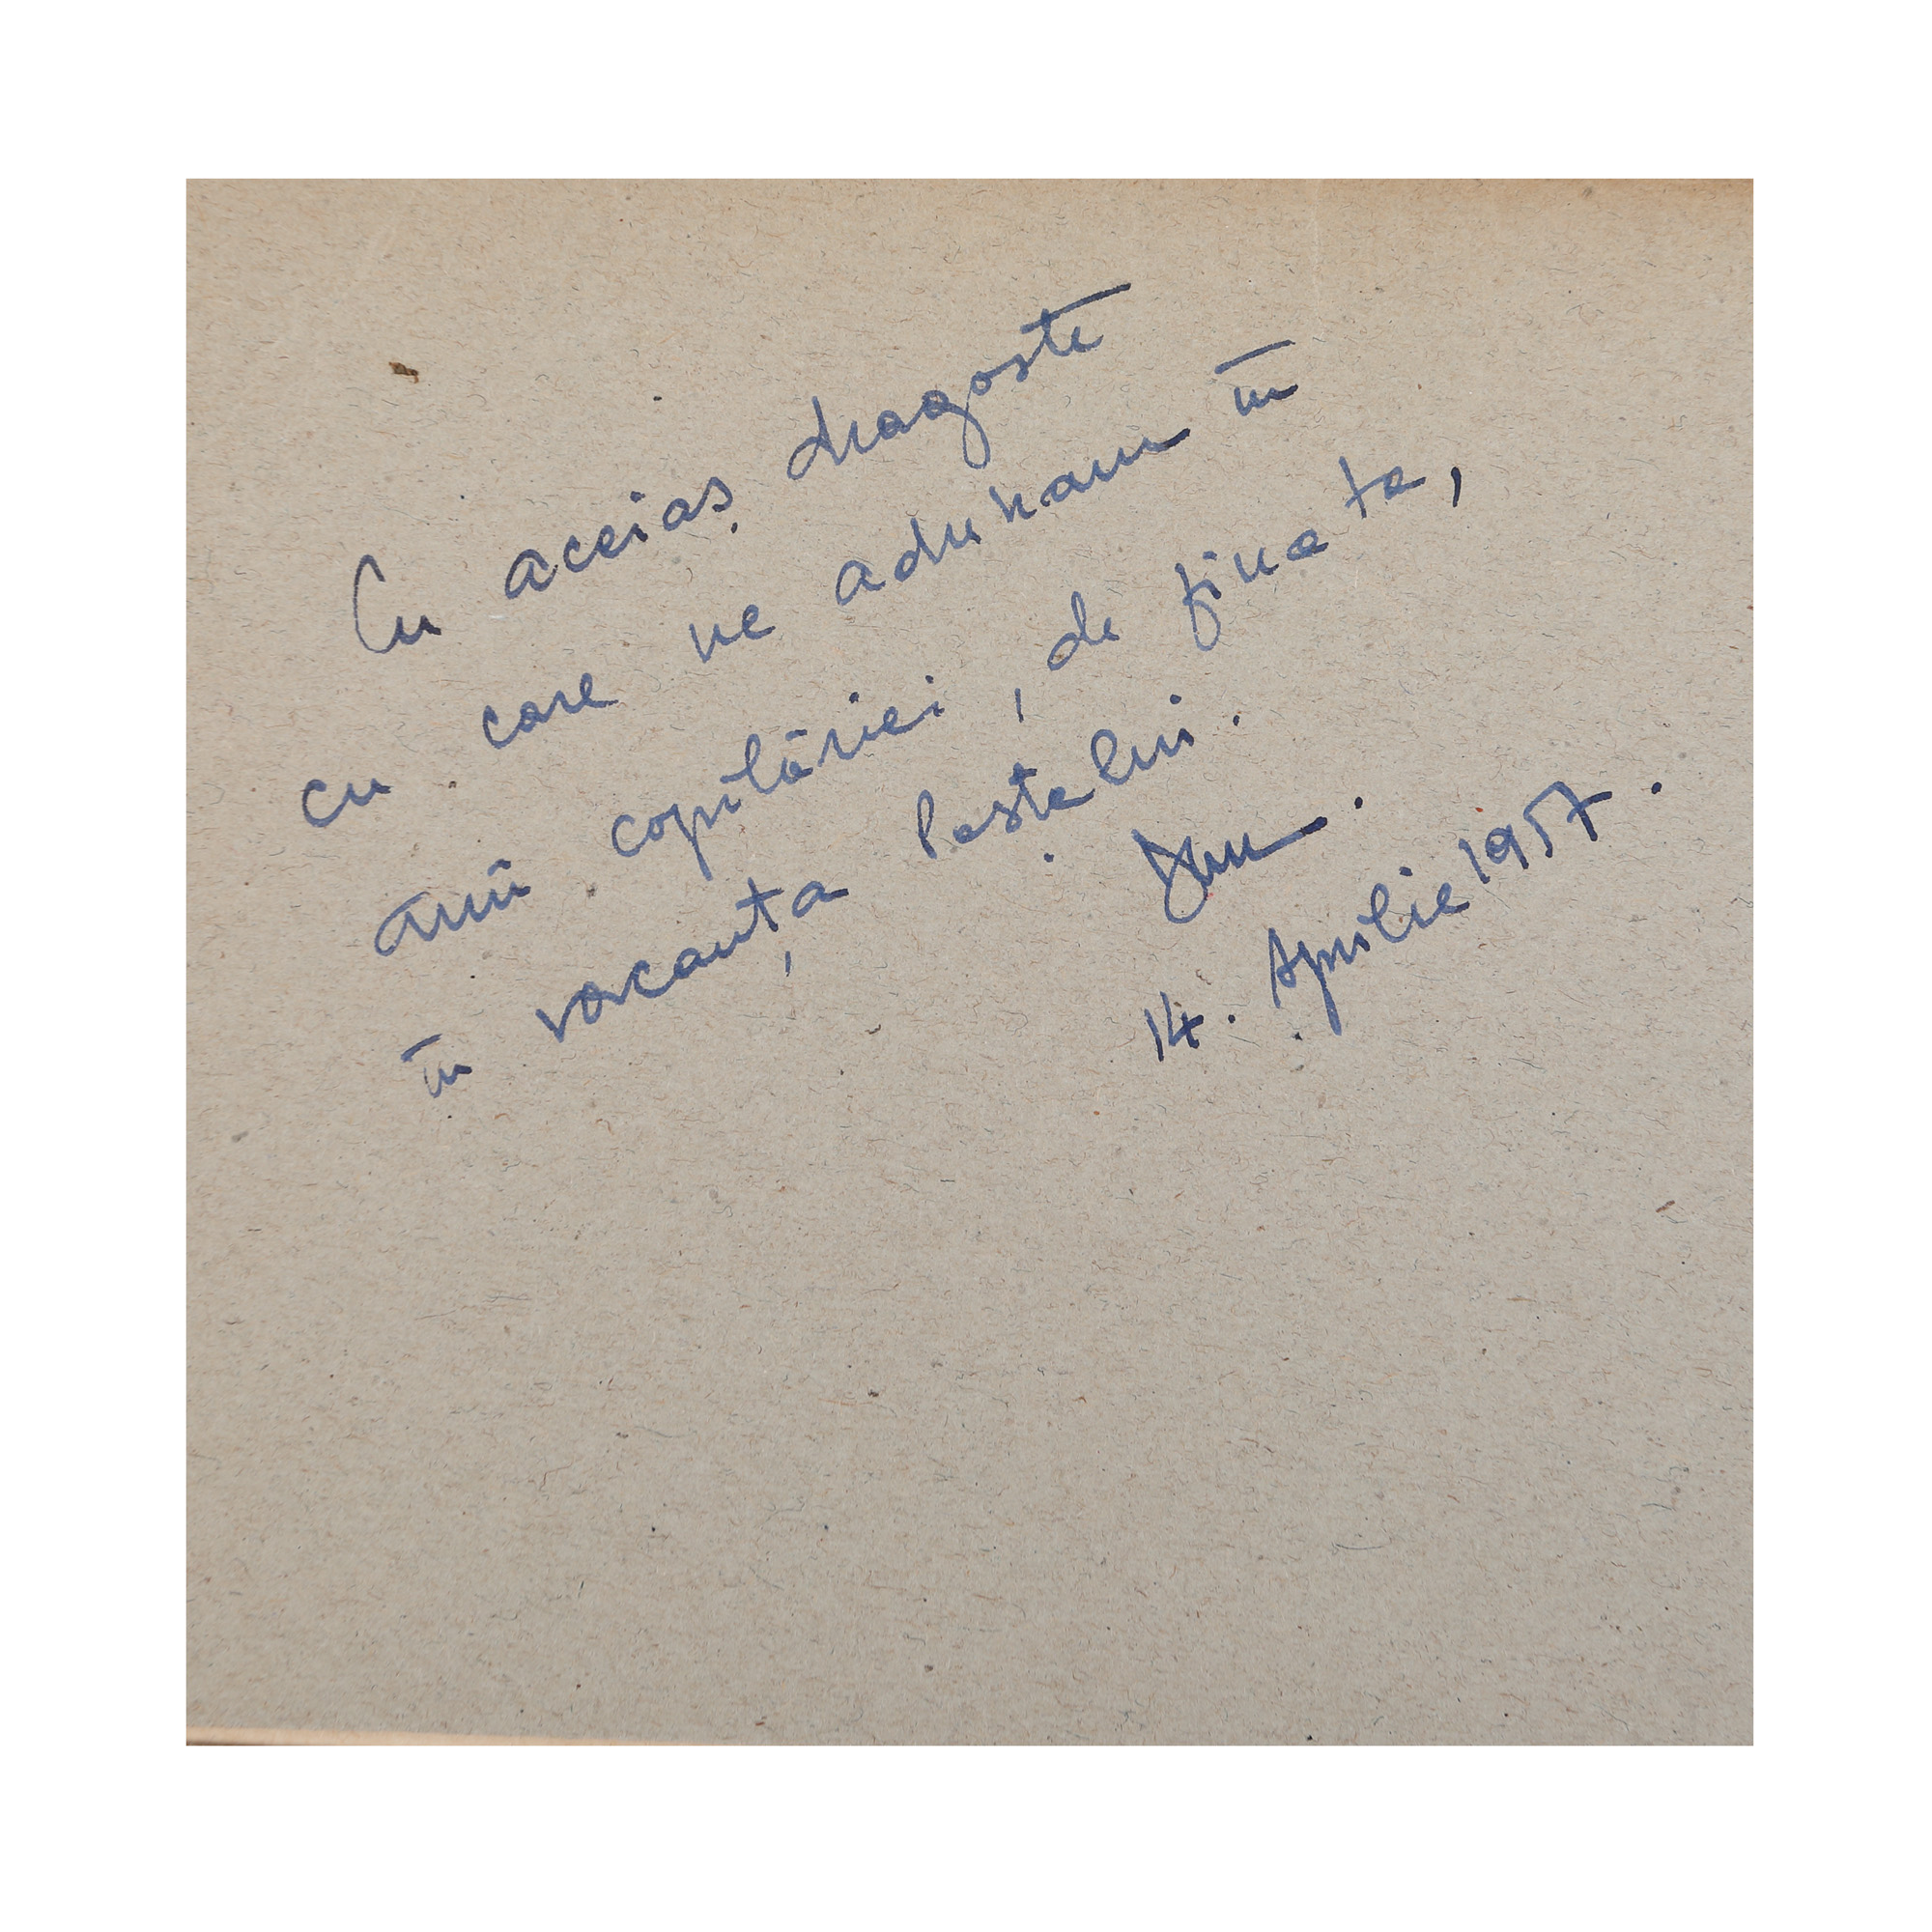 Cu aceiaș dragoste
cu care ne adunam în
anii copilăriei, de
în vacanța Paștelui.
14. Aprilie 1957.